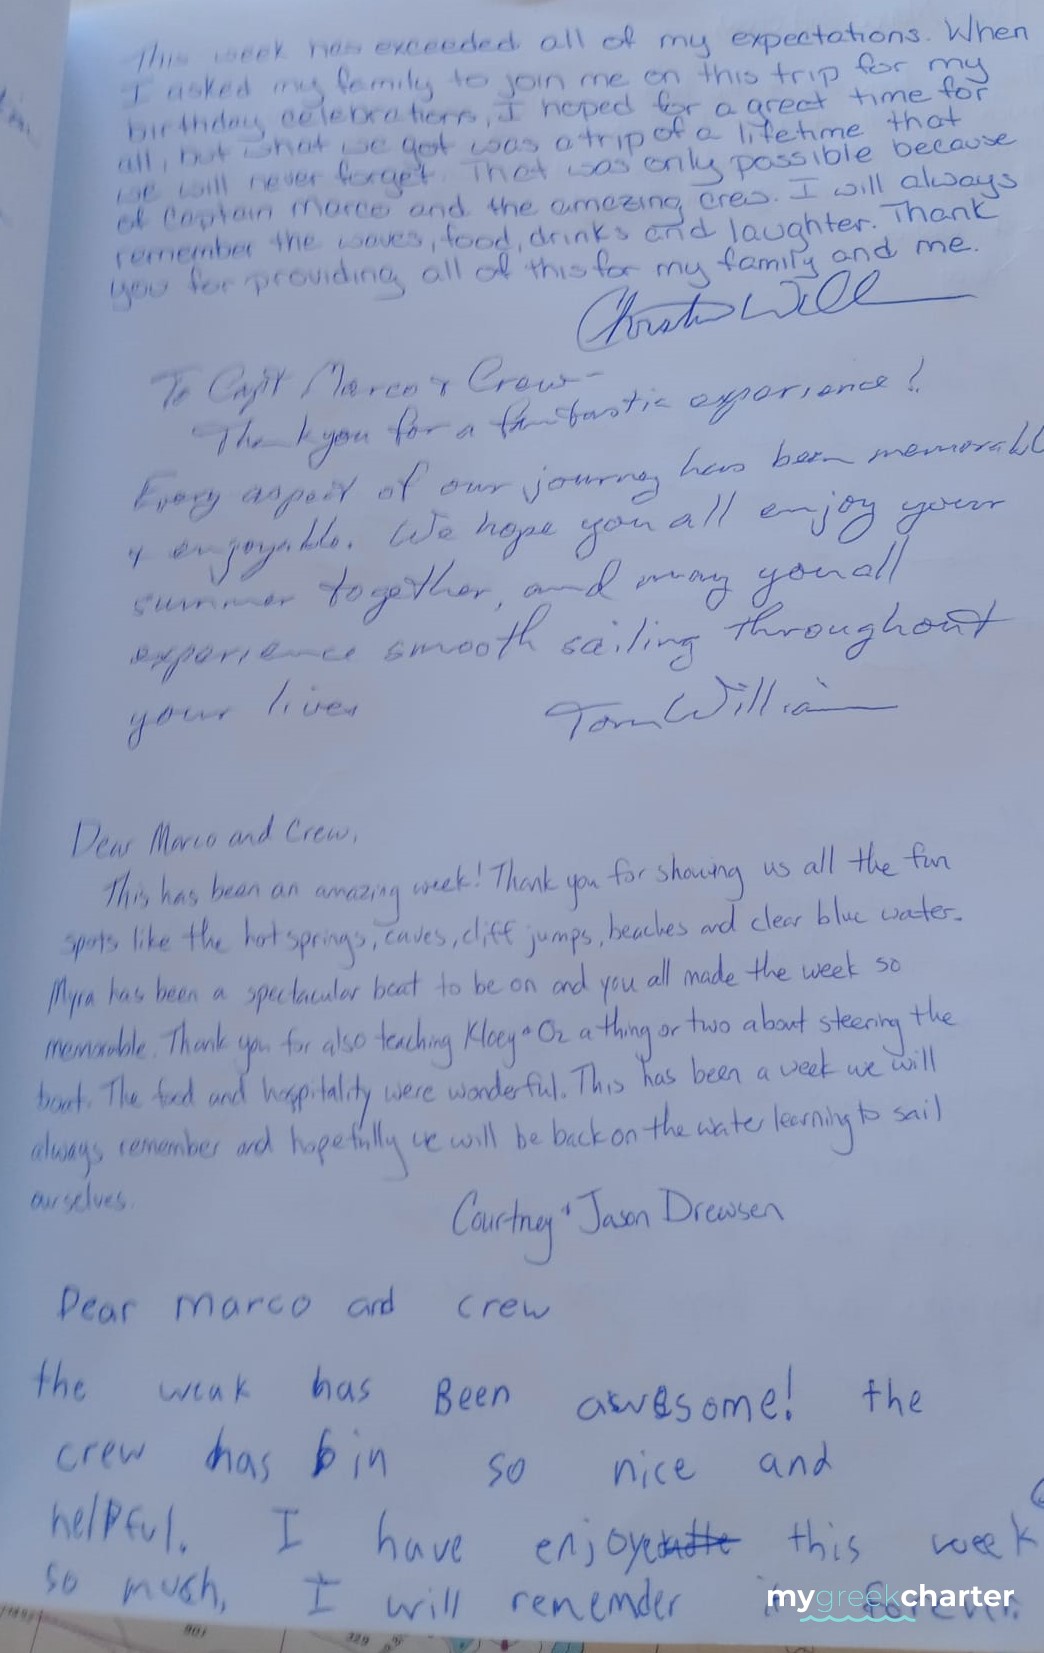 This week has exceeded all of my expectations. When
I asked my family to join me on this trip for my
birthday celebrations, I hoped for a great time for
all, but what we got was a trip of a lifetime that
we will never forget. That was only possible because
of Captain Marco and the amazing crew. I will always
remember the waves, food, drinks and laughter. Thank
you for providing all of this for my family and me.
To Cap't Marco & Crew-
Thank you for a fantastic experience!
Every aspect of our journey has been memorabl
& enjoyable. We hope you all enjoy your
summer together, and may you all
experience smooth sailing throughout
your lives
Tom William
Dear Marco and Crew,
This has been an amazing week! Thank you for showing us all the fun
spots like the hot springs, caves, cliff jumps, beaches and clear blue water.
Myra has been a spectacular boat to be on and you all made the week so
memorable. Thank you for also teaching Kloey + Oz a thing or two about steering the
boat. The food and hospitality were wonderful. This has been a week we will
always remember and hopefully we will be back on the water learning to sail
ourselves.
Courtney + Jason Drewsen
Dear marco and crew
the weak has Been awesome! the
crew has bin so nice and
helpful. I have enjoye this week
so much, I will remember it forever.
mygreekcharter
901
329